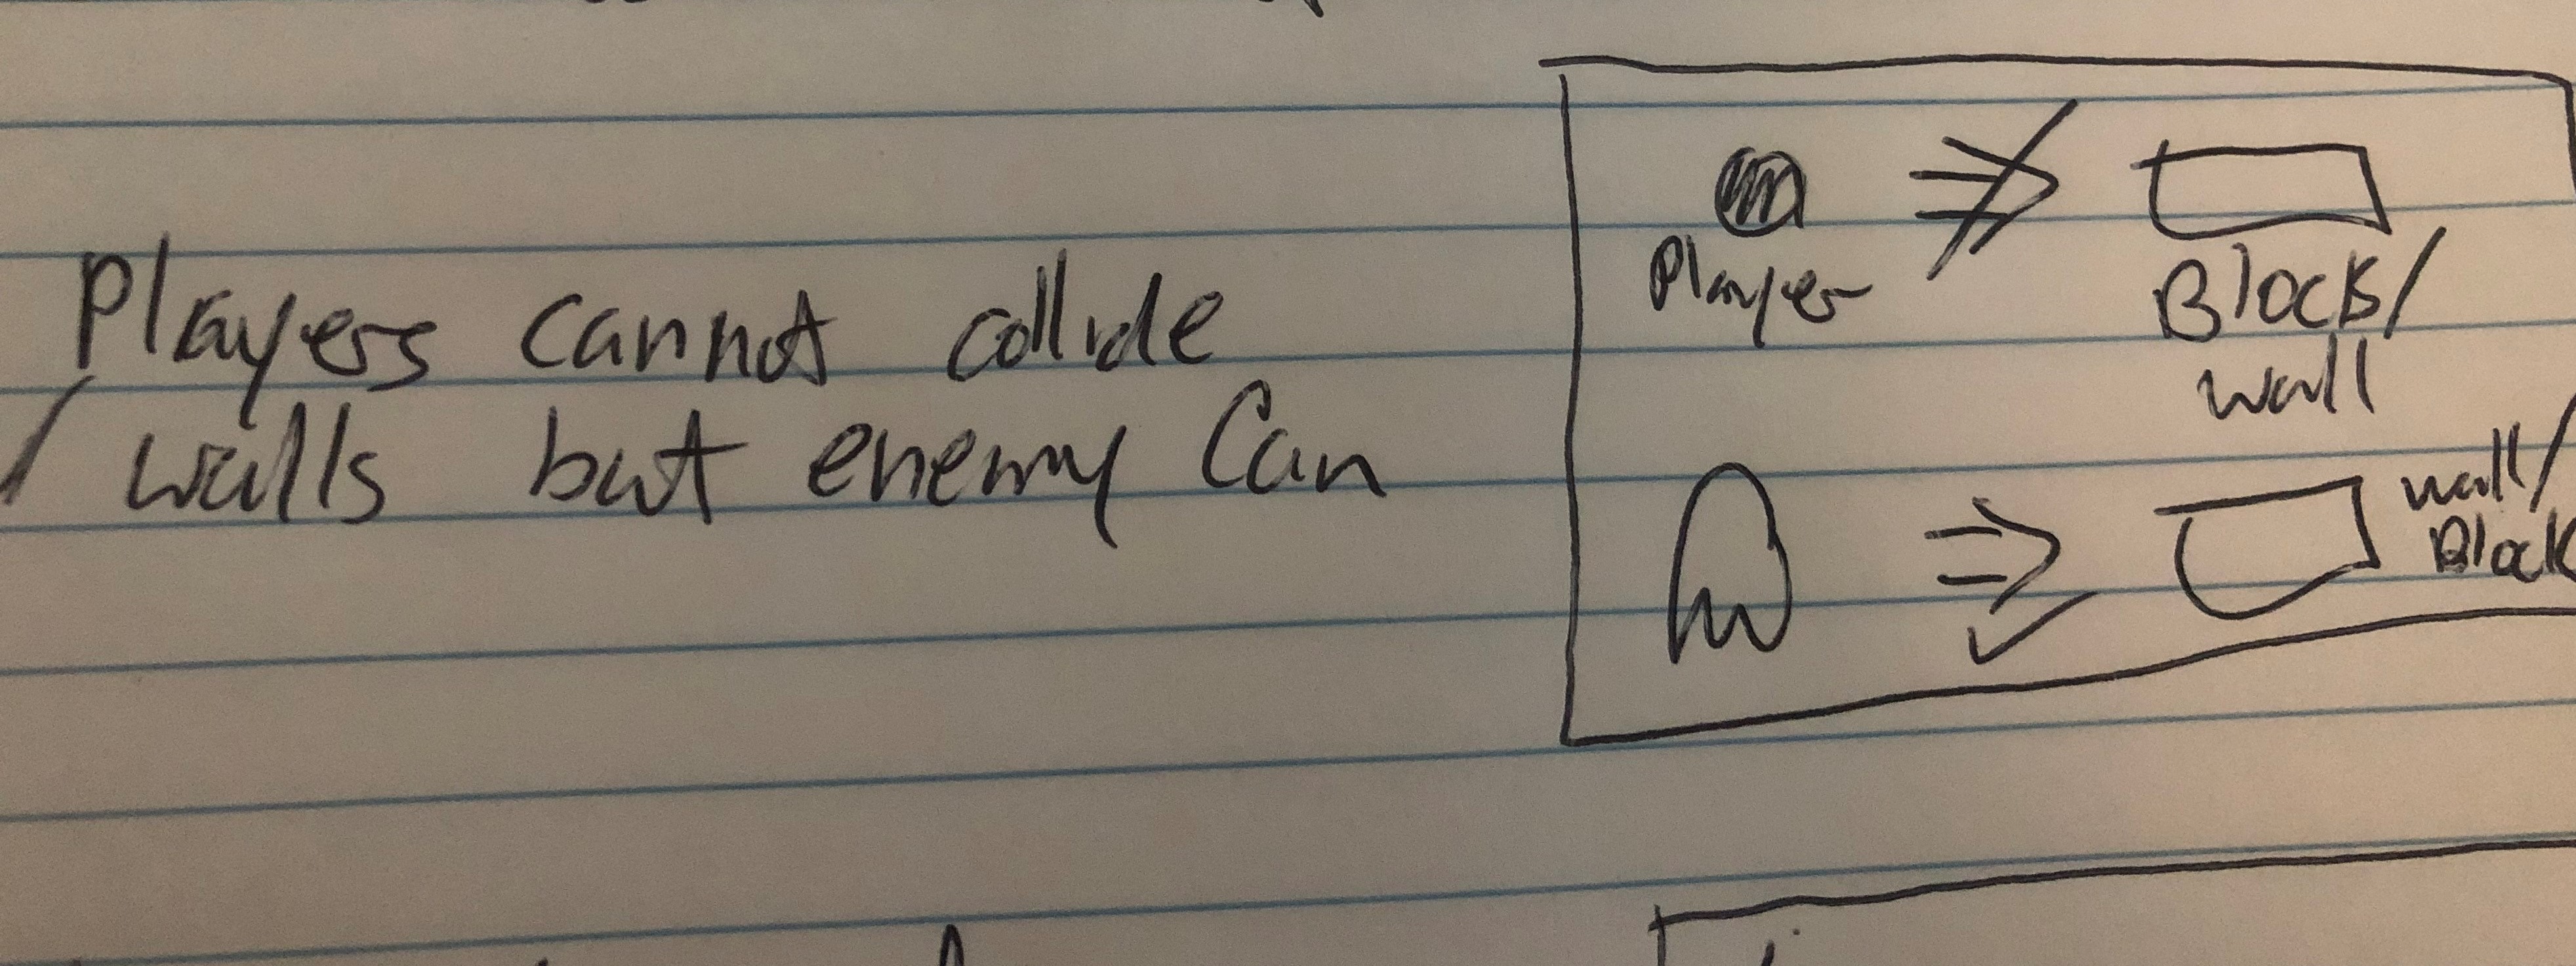 Players cannot collide
/ walls but enemy Can
Player
Block/
wall
wall/
Block